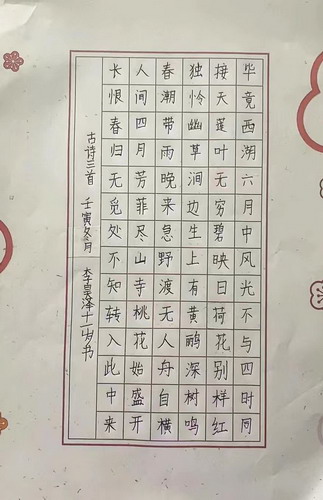 毕竟西湖六月中风光不与四时同
接天莲叶无穷碧映日荷花别样红
独怜幽草涧边生上有黄鹂深树鸣
春潮带雨晚来急野渡无人舟自横
人间四月芳菲尽山寺桃花始盛开
长恨春归无觅处不知转入此中来
古诗三首 壬寅冬月 李昊泽十一岁书